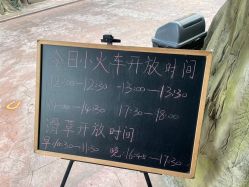 今日小火车开放时间
12:00-12:30 -13:00-13:30
-14:30 17:30-18:00
滑草开放时间
早10:30-11:30 晚 -17:30